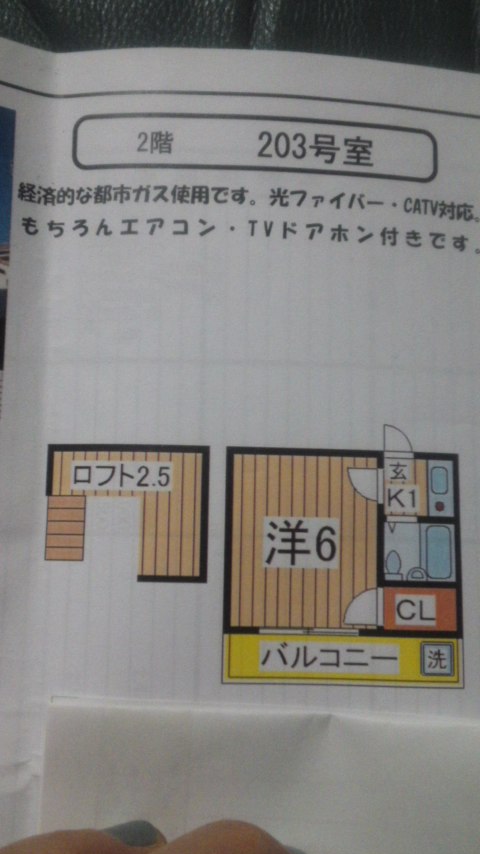 2階 203号室
経済的な都市ガス使用です。光ファイバー・CATV対応。
もちろんエアコン・TVドアホン付きです。
ロフト2.5
玄
K1
洋6
CL
バルコニー
洗